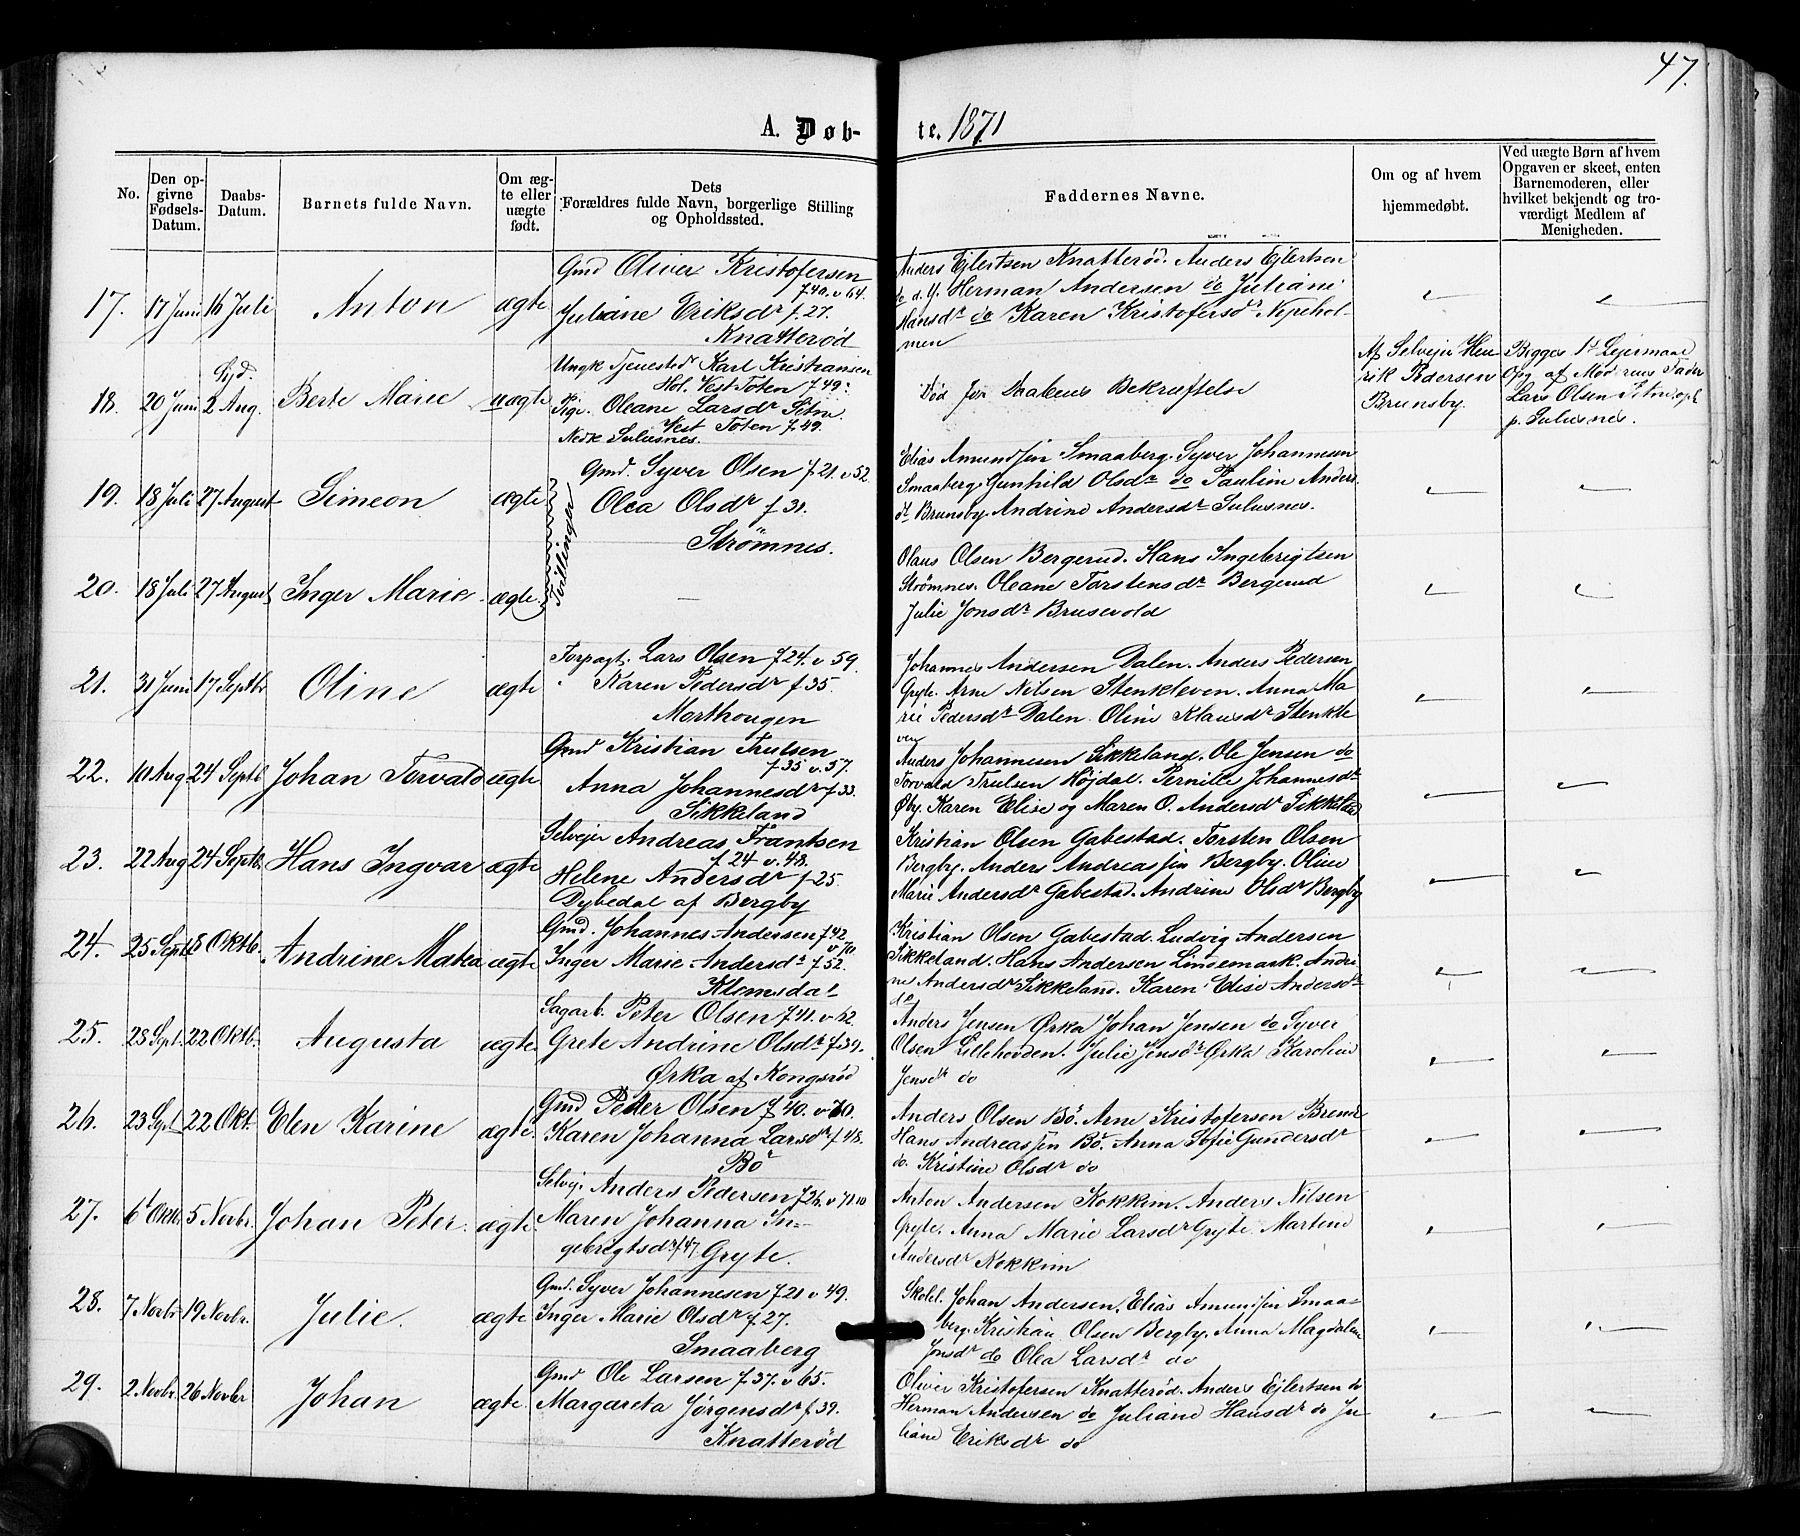 47.
A. Døb-
te. 1871
No.
Den op-
givne
Fødsels-
Datum.
Daabs-
Datum.
Barnets fulde Navn.
Om æg-
te eller
uægte
født.
Dets
Forældres fulde Navn, borgerlige Stilling
og Opholdssted.
Faddernes Navne.
Om og af hvem
hjemmedøbt.
Ved uægte Børn af hvem
Opgaven er skeet, enten
Barnemoderen, eller
hvilket bekjendt og tro-
værdigt Medlem af
Menigheden.
17. 17 Juni 16 Juli Anton ægte
Gmd Oliver Kristofersen
f. 40. v 64.
Juliane Eriksdr f. 27.
Knatterød
Anders Ejlertsen Knatterød. Anders Ejlertsen
do d. y. Herman Andersen do Juliane
Hansdr do Karen Kristofersdr Nepehol-
men
18. 20 Juni 2 Aug. Berte Marie uægte
Ungk Tjenestedr Karl Kristiansen
Hol. Vest Toten f. 49.
Pige. Oleane Larsdr
Vest Toten f. 49.
Død før Daabens Bekræftelse
Af Selvejer Hen
rik Pedersen
Brunsby.
Begges 1st Lejermaal
Opg af Moderens Fader
Lars Olsen
19. 18 Juli 27 August Simeon ægte
Tvillinger
Gmd. Syver Olsen f. 21. v 52.
Olea Olsdr f. 31.
Strømnes.
Elias Amundsen Smaaberg. Syver Johannesen
Smaaberg. Gunhild Olsdr do Pauline Anders
dr Brunsby. Andrine Andersdr Sulusnes.
20. 18 Juli 27 August Inger Marie ægte. —
Olaus Olsen Bergerud. Hans Ingebrigtsen
Strømnes. Oleane Torstensdr Bergerud
Julie Jonsdr Brusevold
21. 31 Juni 17 Septbr Oline ægte
Forpagt. Lars Olsen f. 24. v 59.
Karen Pedersdr f. 35.
Morthougen
Johannes Andersen Dalen. Anders Pedersen
Gryte. Arne Nilsen Stenkleven. Anna Ma
rie Pedersdr Dalen. Oline Klausdr Stenkle
ven
22. 10 Aug 24 Septb Johan Torvald ægte
Gmd Kristian Trulsen
f 35 v. 57.
Anna Johannesdr f. 33.
Sikkeland
Anders Johannesen Sikkeland. Ole Jensen do
Torvald Trulsen Højdal. Pernille Johannesdr
Øby. Karen Elise og Maren O. Andersdr Sikkeland
23. 22 Aug 24 Septb. Hans Ingvar ægte
Selvejer Andreas Frantsen
f 24 v. 48.
Helene Andersdr f 25.
Dybedal af Bergby
Kristian Olsen Gabestad. Torsten Olsen
Bergby. Anders Andreassen Bergby. Oline
Marie Andersdr Gabestad. Andrine Olsdr Bergby
24. 25 Septb 8 Oktb. Andrine Matea ægte
Gmd. Johannes Andersen f 42
v. 70.
Inger Marie Andersdr f 52.
Klemsdal
Kristian Olsen Gabestad. Ludvig Andersen
Sikkeland. Hans Andersen Lindemark. Andri
ne Andersdr Sikkeland. Karen Elise Andersdr
do
25. 28 Sept. 22 Oktb. Augusta ægte
Sagarb. Peter Olsen f. 41. v 62.
Grete Andrine Olsdr f. 39.
Ørka af Kongsrød
Anders Jensen Ørka Johan Jensen do Syver
Olsen Lillehovden. Julie Jensdr Ørka Karoline
Jensdr do
26. 23 Spt 22 Okt. Elen Karine ægte
Gmd Peter Olsen f. 40. v 70.
Karen Johanna Larsdr f. 48.
Bö
Anders Olsen Bö. Arne Kristofersen
Hans Andreassen Bö. Anna Sofie Gundersdr
do. Kristine Olsdr do
27. 6t Oktb. 5 Novbr. Johan Peter. ægte
Selvej. Anders Pedersen f 26. v 71
Maren Johanna In-
gebrigtsdr f 47 Gryte.
Anton Andersen Kokkim. Anders Nilsen
Gryte. Anna Marie Larsdr Gryte. Martene
Andersdr Kokkim
28. 7 Novbr 19 Novbr. Julie. ægte
Gmd. Syver Johannesen f 21 v 49.
Inger Marie Olsdr f. 27.
Smaaberg
Skolel. Johan Andersen. Elias Amundsen Smaa-
berg. Kristian Olsen Bergby. Anna Magdalene
Jonsdr do Olea Larsdr do
29. 2 Novbr. 26 Novbr Johan ægte
Gmd Ole Larsen f. 37. v 65.
Margareta Jørgensdr f. 39.
Knatterød
Oliver Kristofersen Knatterød. Anders Ejlertsen do
Herman Andersen do Juliane Hansdr do Ju
liane Eriksdr do